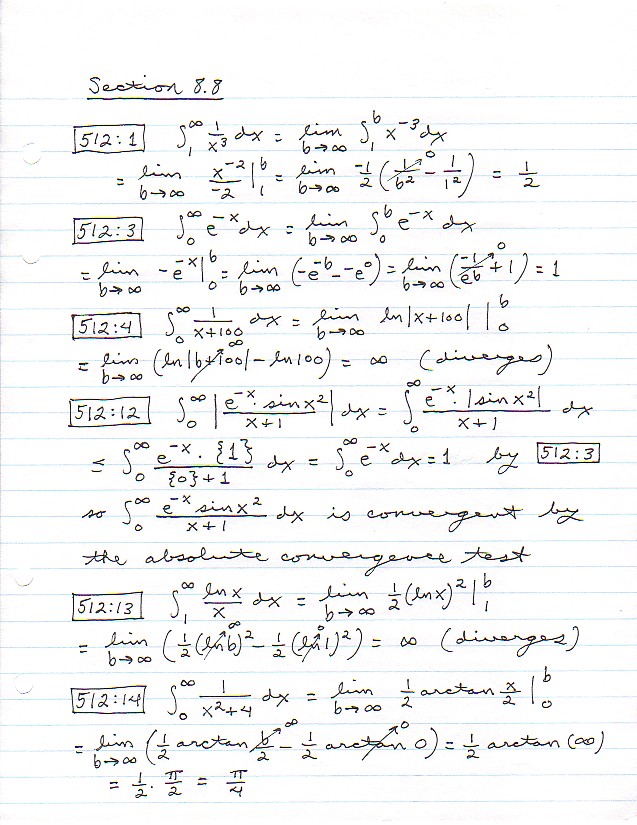 Section 8.8
512:1 ∫₁^∞ 1/x³ dx = lim_{b→∞} ∫₁^b x⁻³ dx
= lim_{b→∞} x⁻²/-2 |₁^b = lim_{b→∞} -1/2 (1/b² ↗0 - 1/1²) = 1/2
512:3 ∫₀^∞ e^-x dx = lim_{b→∞} ∫₀^b e^-x dx
= lim_{b→∞} -e^-x |₀^b = lim_{b→∞} (-e^-b - -e⁰) = lim_{b→∞} (-1/e^b ↗0 + 1) = 1
512:4 ∫₀^∞ 1/(x+100) dx = lim_{b→∞} ln|x+100| |₀^b
= lim_{b→∞} (ln|b+100| ↗∞ - ln100) = ∞ (diverges)
512:12 ∫₀^∞ |e^-x · sin x²/(x+1)| dx = ∫₀^∞ e^-x · |sin x²|/(x+1) dx
≤ ∫₀^∞ e^-x · {1}/({0}+1) dx = ∫₀^∞ e^-x dx = 1 by 512:3
so ∫₀^∞ e^-x sin x²/(x+1) dx is convergent by
the absolute convergence test
512:13 ∫₁^∞ ln x/x dx = lim_{b→∞} 1/2 (ln x)² |₁^b
= lim_{b→∞} (1/2 (ln b ↗∞)² - 1/2 (ln 1 ↗0)²) = ∞ (diverges)
512:14 ∫₀^∞ 1/(x²+4) dx = lim_{b→∞} 1/2 arctan x/2 |₀^b
= lim_{b→∞} (1/2 arctan b/2 ↗∞ - 1/2 arctan 0 ↗0) = 1/2 arctan (∞)
= 1/2 · π/2 = π/4